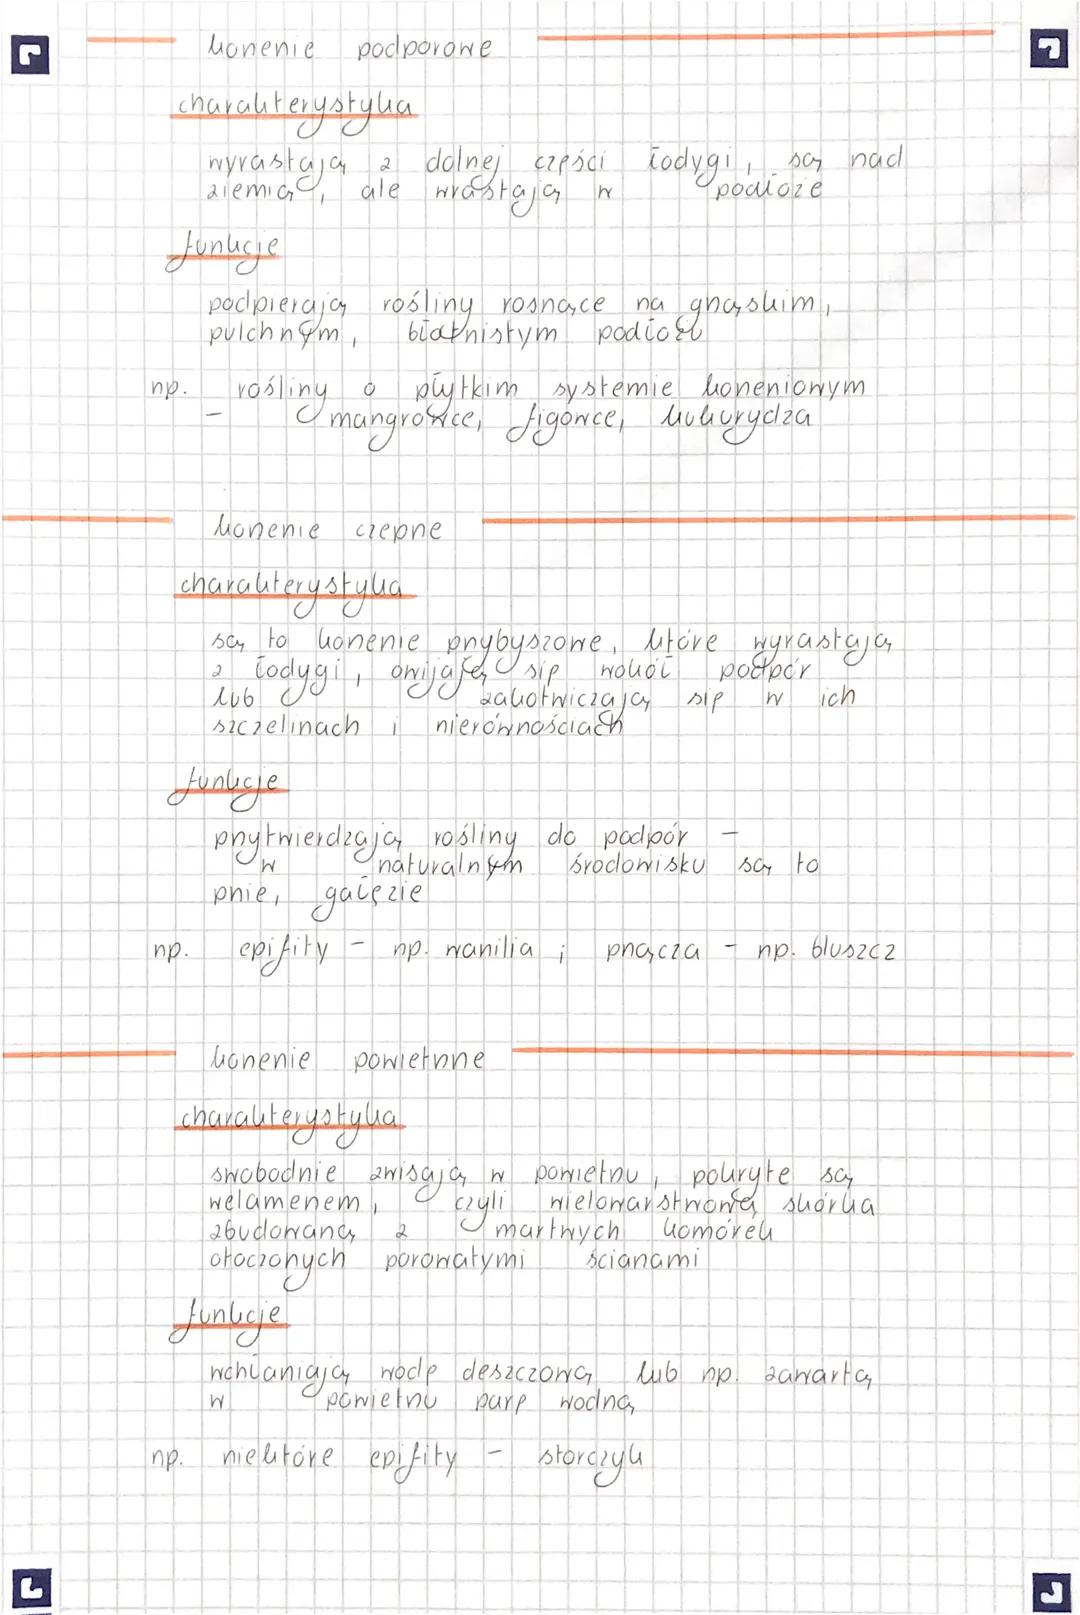 korzenie podporowe
charakterystyka
wyrastają z dolnej części łodygi, są nad
ziemią, ale wrastają w podłoże
funkcje
podpierają rośliny rosnące na grząskim,
pulchnym, błotnistym podłożu
np. rośliny o płytkim systemie korzeniowym
- mangrowce, figowce, kukurydza
korzenie czepne
charakterystyka
są to korzenie przybyszowe, które wyrastają
z łodygi, owijają się wokół podpór
lub zakotwiczają się w ich
szczelinach i nierównościach
funkcje
przytwierdzają rośliny do podpór -
w naturalnym środowisku są to
pnie, gałęzie
np. epifity - np. wanilia ; pnącza - np. bluszcz
korzenie powietrzne
charakterystyka
swobodnie zwisają w powietrzu, pokryte są
welamenem, czyli wielowarstwową skórką
zbudowaną z martwych komórek
otoczonych porowatymi ścianami
funkcje
wchłaniają wodę deszczową lub np. zawartą
w powietrzu parę wodną
np. niektóre epifity - storczyk